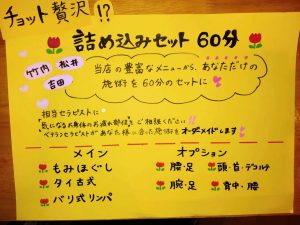 チョット贅沢!?
詰め込みセット 60分
竹内 松井
吉田
当店の豊富なメニューから、あなただけの
施術を60分のセットに
担当セラピストに
気になるお身体のお疲れ部位をご相談ください
ベテランセラピストがあなた様に合った施術をオーダーメイドします
メイン
オプション
もみほぐし
腰・足
頭・首・デコルテ
タイ古式
腕・足
背中・腰
バリ式リンパ